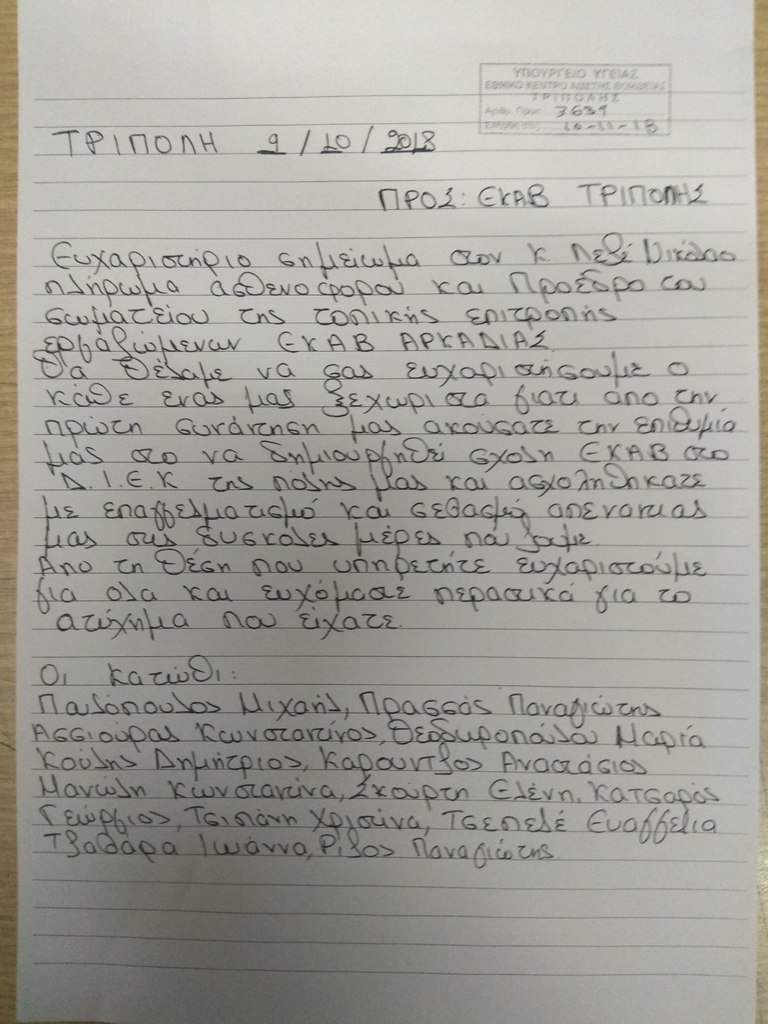 ΥΠΟΥΡΓΕΙΟ ΥΓΕΙΑΣ
ΕΘΝΙΚΟ ΚΕΝΤΡΟ ΑΜΕΣΗΣ ΒΟΗΘΕΙΑΣ
ΤΡΙΠΟΛΗΣ
Αριθ. Πρωτ. 3631
16-11-18
ΤΡΙΠΟΛΗ 9/10/2018
ΠΡΟΣ: ΕΚΑΒ ΤΡΙΠΟΛΗΣ
Ευχαριστήριο σημείωμα στον κ. Λεβέ Νικόλαο
πλήρωμα ασθενοφόρου και Πρόεδρο του
σωματείου της τοπικής επιτροπής
εργαζώμενων ΕΚΑΒ ΑΡΚΑΔΙΑΣ
Θα θέλαμε να σας ευχαριστήσουμε ο
κάθε ενας μας ξεχωριστα γιατι απο την
πρώτη συνάντηση μας ακούσατε την επιθυμία
μας στο να δημιουργηθεί σχολη ΕΚΑΒ στο
Δ.Ι.Ε.Κ της πόλης μας και ασχοληθηκατε
με επαγγελματισμό και σεβασμό απεναντιας
μας στις δυσκολες μέρες που ζουμε
Απο τη θέση που υπηρετήτε ευχαριστούμε
για ολα και ευχόμαστε περαστικά για το
ατύχημα που είχατε.
Οι κατωθι:
Παυλόπουλος Μιχαήλ, Πρασσάς Παναγιώτης
Ασσιούρας Κωνσταντίνος, Θεοδωροπούλου Μαρία
Κούλης Δημήτριος, Καρούντζος Αναστάσιος
Μανώλη Κωνσταντίνα, Σκούρτη Ελένη, Κατσαρός
Γεώργιος, Τσιπάνη Χριστίνα, Τσεπελέ Ευαγγελια
Τζαθαρα Ιωάννα, Ρίζος Παναγιώτης.